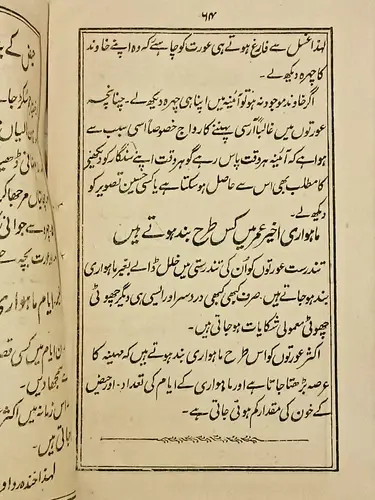 ۶۴
لہذا غسل سے فارغ ہوتے ہی عورت کو چاہئے کہ وہ اپنے خاوند
کا چہرہ دیکھ لے۔
اگر خاوند موجود نہ ہو تو آئینہ میں اپنا ہی چہرہ دیکھ لے۔ چنانچہ
عورتوں میں غالباً آرسی پہننے کا رواج خصوصاً اسی سبب سے
ہوا ہے کہ آئینہ ہر وقت پاس رہے گو ہر وقت اپنے سنگار کو دیکھنے
کا مطلب بھی اس سے حاصل ہو سکتا ہے یا کسی حسین تصویر کو
دیکھ لے۔
ماہواری اخیر عمر میں کس طرح بند ہوتے ہیں
تندرست عورتوں کو ان کی تندرستی میں خلل ڈالے بغیر ماہواری
بند ہو جاتے ہیں۔ صرف کبھی کبھی دردِسر اور ایسی ہی دیگر چھوٹی
چھوٹی معمولی شکایات ہو جاتی ہیں۔
اکثر عورتوں کو اس طرح ماہواری بند ہوتے ہیں کہ مہینہ کا
عرصہ بڑھتا جاتا ہے اور ماہواری کے ایام کی تعداد۔ اور حیض
کے خون کی مقدار کم ہوتی جاتی ہے۔